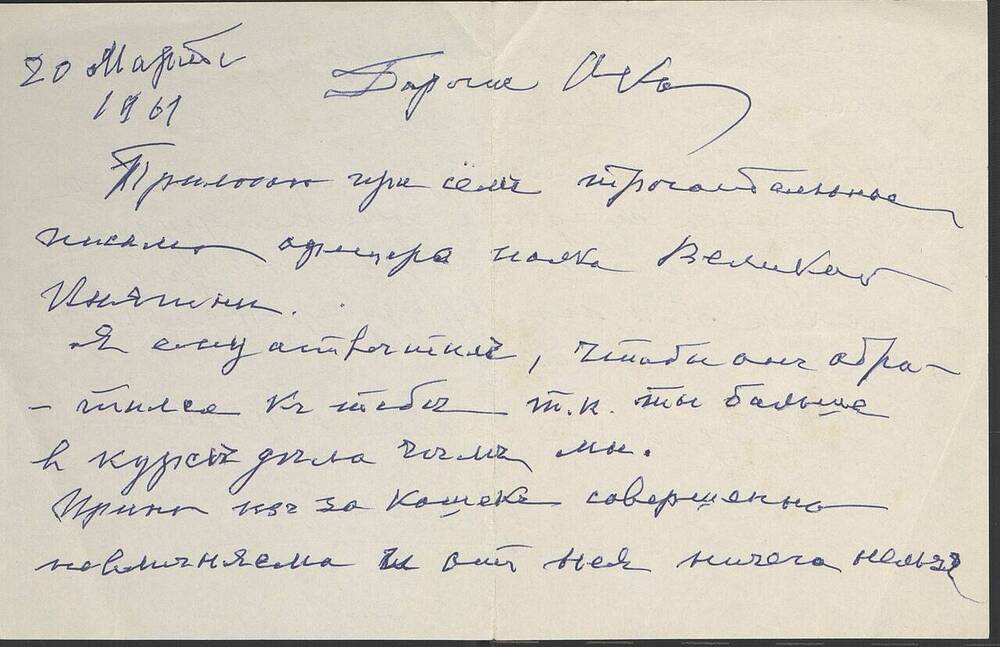 20 Марта
1961
Прилагаю при сем трогательное
письмо офицера полка Великой
Княгини.
Я ему ответил, чтобы онъ обра-
- тился къ тебѣ т.к. ты больше
в курсѣ дѣла чѣмъ мы.
Ирина изъ за кошекъ совершенно
невмѣняема и от нея ничего нельзя